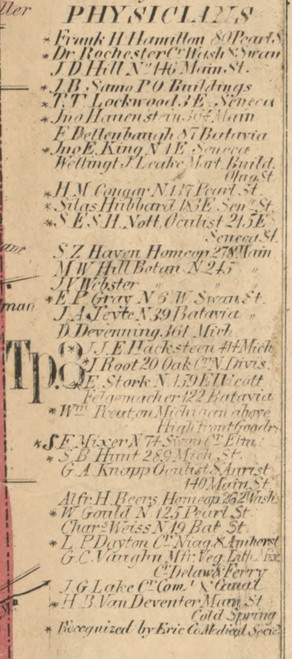 ller
PHYSICIANS
* Frank H Hamilton 80 Pearl S
* Dr Rochester Cr Wash & Swan
J D Hill No 146 Main St.
* J.B. Samo P O Buildings
* T. T Lockwood 3 E. Seneca
* Jno Hauenstein 364 Main
F Dellenbaugh 87 Batavia
* Jno E. King N 1 E Seneca
Wellingt J Leake Mart. Build.
Niag St.
* H M Congar N 147 Pearl St.
* Silas Hubbard 183 E. Sen. St.
* S E S H. Nott, Oculist 245 E
Seneca St.
S Z Haven Homeop 278 Main
M W Hill Botan N 245 "
J V Webster " " "
* E P Gray N 6 W Swan St.
J A Jeyte N 39 Batavia "
D Devenning 361 Mich
Tp.8
J J E Hacksteen 414 Mich
J Root 20 Oak Cr N. Divis.
E. Stork N 159 Ellicott
Felgemacher 422 Batavia
* Wm Treuton Michigan above
High front Goodr.
* S F Mixer N 74 Swan Cr Elm.
* S B Hunt 289 Mich St.
G A Knapp Oculist & Aurist
140 Main St.
Alfr. H Beers Homeop 262 Wash.
* W Gould N 125 Pearl St
Chars Weiss N 19 Bat St
* L P Dayton Cr Niag & Amherst
G C Vaughn Mfr Veg. Lith.
Cr Delaw & Ferry
J G Lake Cr Com. & Canal
* H B Van Deventer Main St
Cold Spring
* Recognized by Erie Co Medical Socie